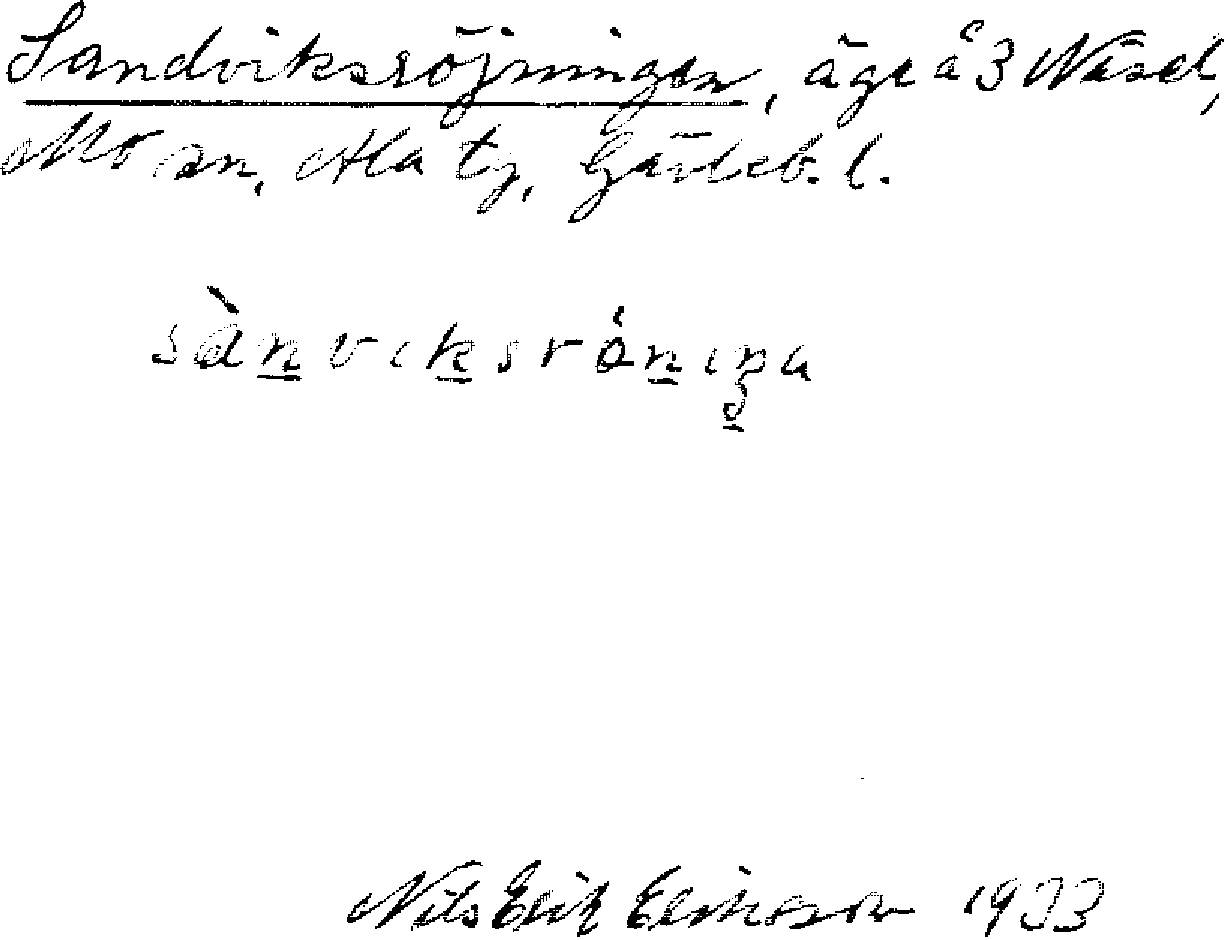 Sandviksröjningen, äga å 3 Näsel,
Mo sn, Ala tg, Gävleb. l.
sànviksrôniŋa
Nils Erik Eriksson 1933